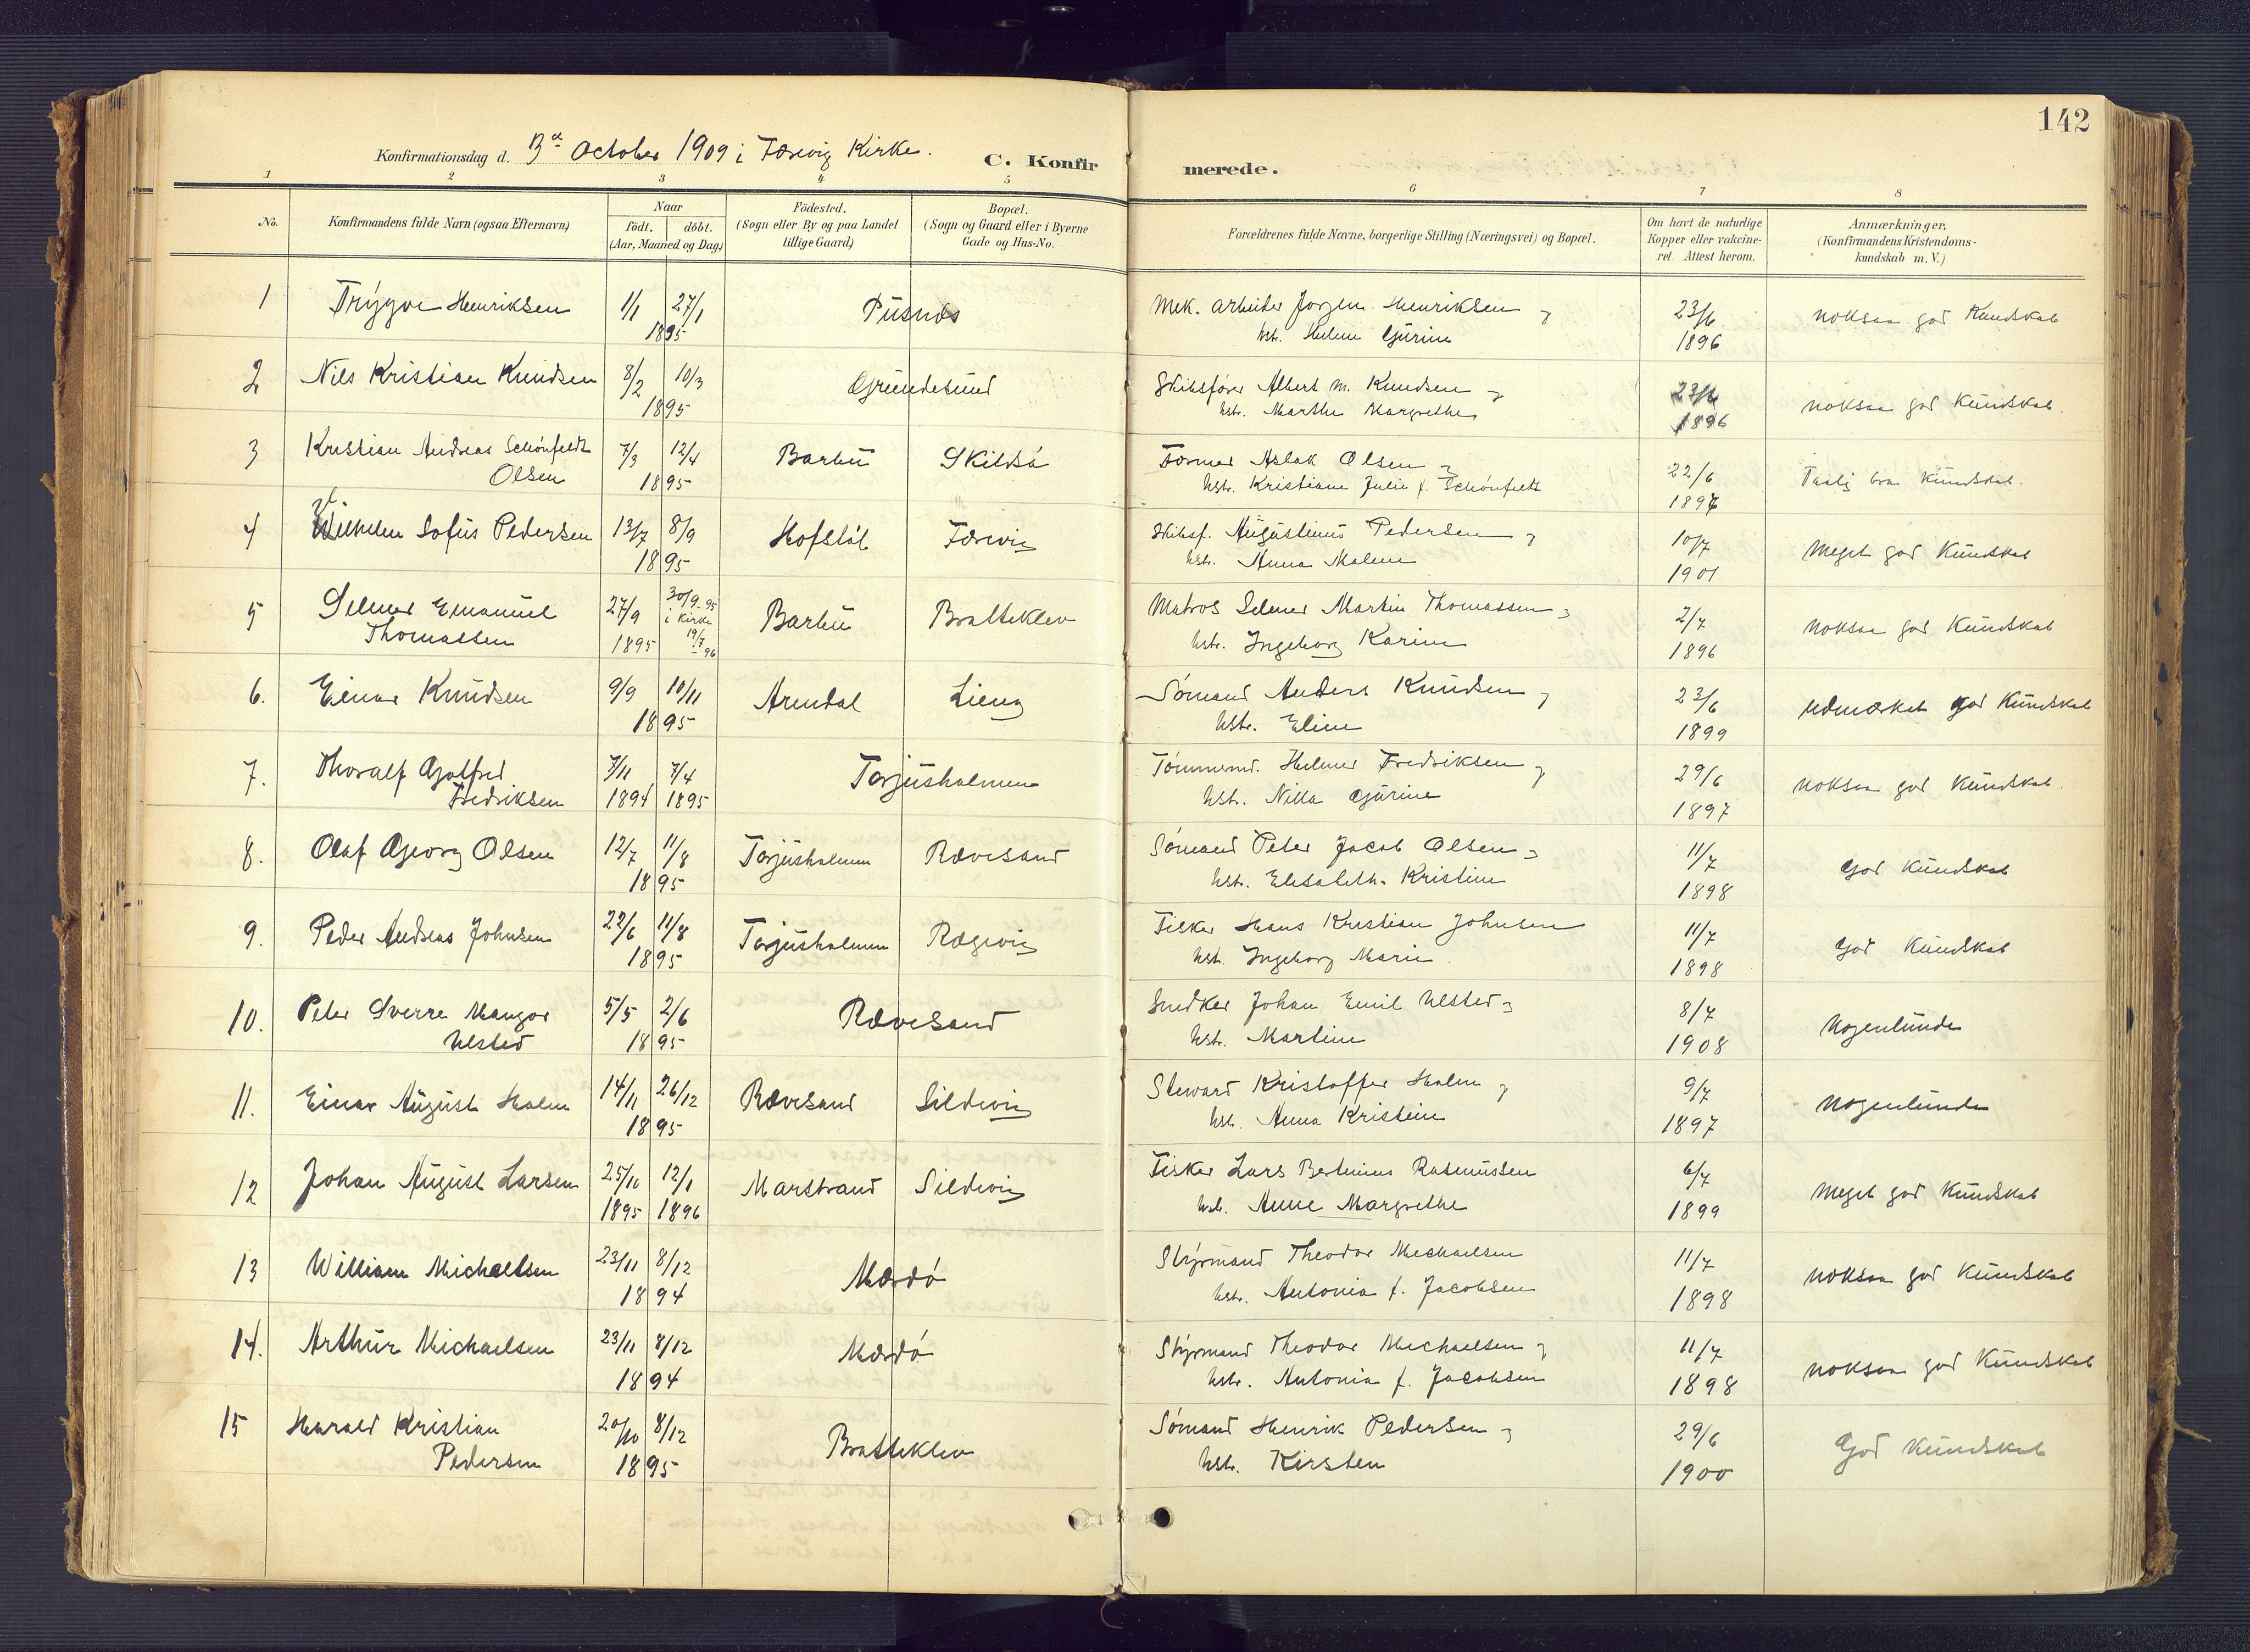 142
Konfirmationsdag d. 3d October 1909 i Færvig Kirke. C. Konfirmerede.
1 2 3 4 5 6 7 8
No. Konfirmandens fulde Navn (ogsaa Efternavn) Naar födt. döbt. (Aar, Maaned og Dag) Födested. (Sogn eller By og paa Landet tillige Gaard) Bopæl. (Sogn og Gaard eller i Byerne Gade og Hus-No. Forældrenes fulde Navne, borgerlige Stilling (Næringsvei) og Bopæl. Om havt de naturlige Kopper eller vakcineret. Attest herom. Anmærkninger. (Konfirmandens Kristendomskundskab m. V.)
1 Trygve Henriksen 1/1 27/1 Pusnes Mek. arbeider Jørgen Henriksen og 23/6 noksaa god Kundskab
1895 hst. Helene Gurine 1896
2 Nils Kristian Knudsen 8/2 10/3 Grundesund Skibsfører Albert M. Knudsen og 23/6 noksaa god Kundskab.
1895 hst. Marthe Margrethe 1896
3 Kristian Andreas Schönfeldt 7/3 12/4 Barbu Skilsö Former Aslak Olsen og 22/6 Taalig bra Kundskab.
Olsen 1895 hst. Kristiane Julie f. Schönfeldt 1897
4 Vilhelm Sofus Pedersen 13/7 8/9 Hofstöl Færvig Skibsf. Augustinus Pedersen og 10/7 Meget god Kundskab
1895 hst. Anna Malene 1901
5 Selmer Emanuel 27/9 30/9-95 i Kirke Barbu Bratteklev Matros Selmer Martin Thomassen og 2/7 noksaa god Kundskab
Thomassen 1895 19/7 96 hst. Ingeborg Karine 1896
6. Einar Knudsen 9/9 10/11 Arendal Lieng Sömand Anders Knudsen og 23/6 udmærket god Kundskab
1895 hst. Eline 1899
7. Thoralf Gotfred 7/11 7/4 Torjusholmen Tömmermd. Helmer Fredriksen og 29/6 noksaa god Kundskab.
Fredriksen 1894 1895 hst. Nilla Gurine 1897
8. Olaf Georg Olsen 12/7 11/8 Torjusholmen Rævesand Sömand Peter Jacob Olsen og 11/7 God Kundskab
1895 hst. Elisabeth Kristine 1898
9. Peder Andreas Johnsen 22/6 11/8 Torjusholmen Rægevig Fisker Hans Kristian Johnsen 11/7 God Kundskab
1895 hst. Ingeborg Marie. 1898
10. Peter Sverre Mangor 5/5 2/6 Rævesand Snedker Johan Emil Ulsted og 8/7 Nogenlunde
Ulsted 1895 hst. Martine 1908
11. Einar August Holm 14/11 26/12 Rævesand Sildevig Steward Kristoffer Holm og 9/7 Nogenlunde
1895 hst. Anna Kristine 1897
12 Johan August Larsen 25/10 12/1 Marstrand Sildevig Fisker Lars Bertinius Rasmussen 6/7 Meget god Kundskab
1895 1896 hst. Anne Margrethe 1899
13 William Michaelsen 23/11 8/12 Mærdö Styrmand Theodor Michaelsen 11/7 noksaa god Kundskab
1894 hst. Antonia f. Jacobsen 1898
14. Arthur Michaelsen 23/11 8/12 Mærdö Styrmand Theodor Michaelsen og 11/7 noksaa god Kundskab
1894 hst. Antonia f. Jacobsen 1898
15 Harald Kristian 20/10 8/12 Bratteklev Sömand Henrik Pedersen og 29/6 God Kundskab
Pedersen 1895 hst. Kirsten 1900